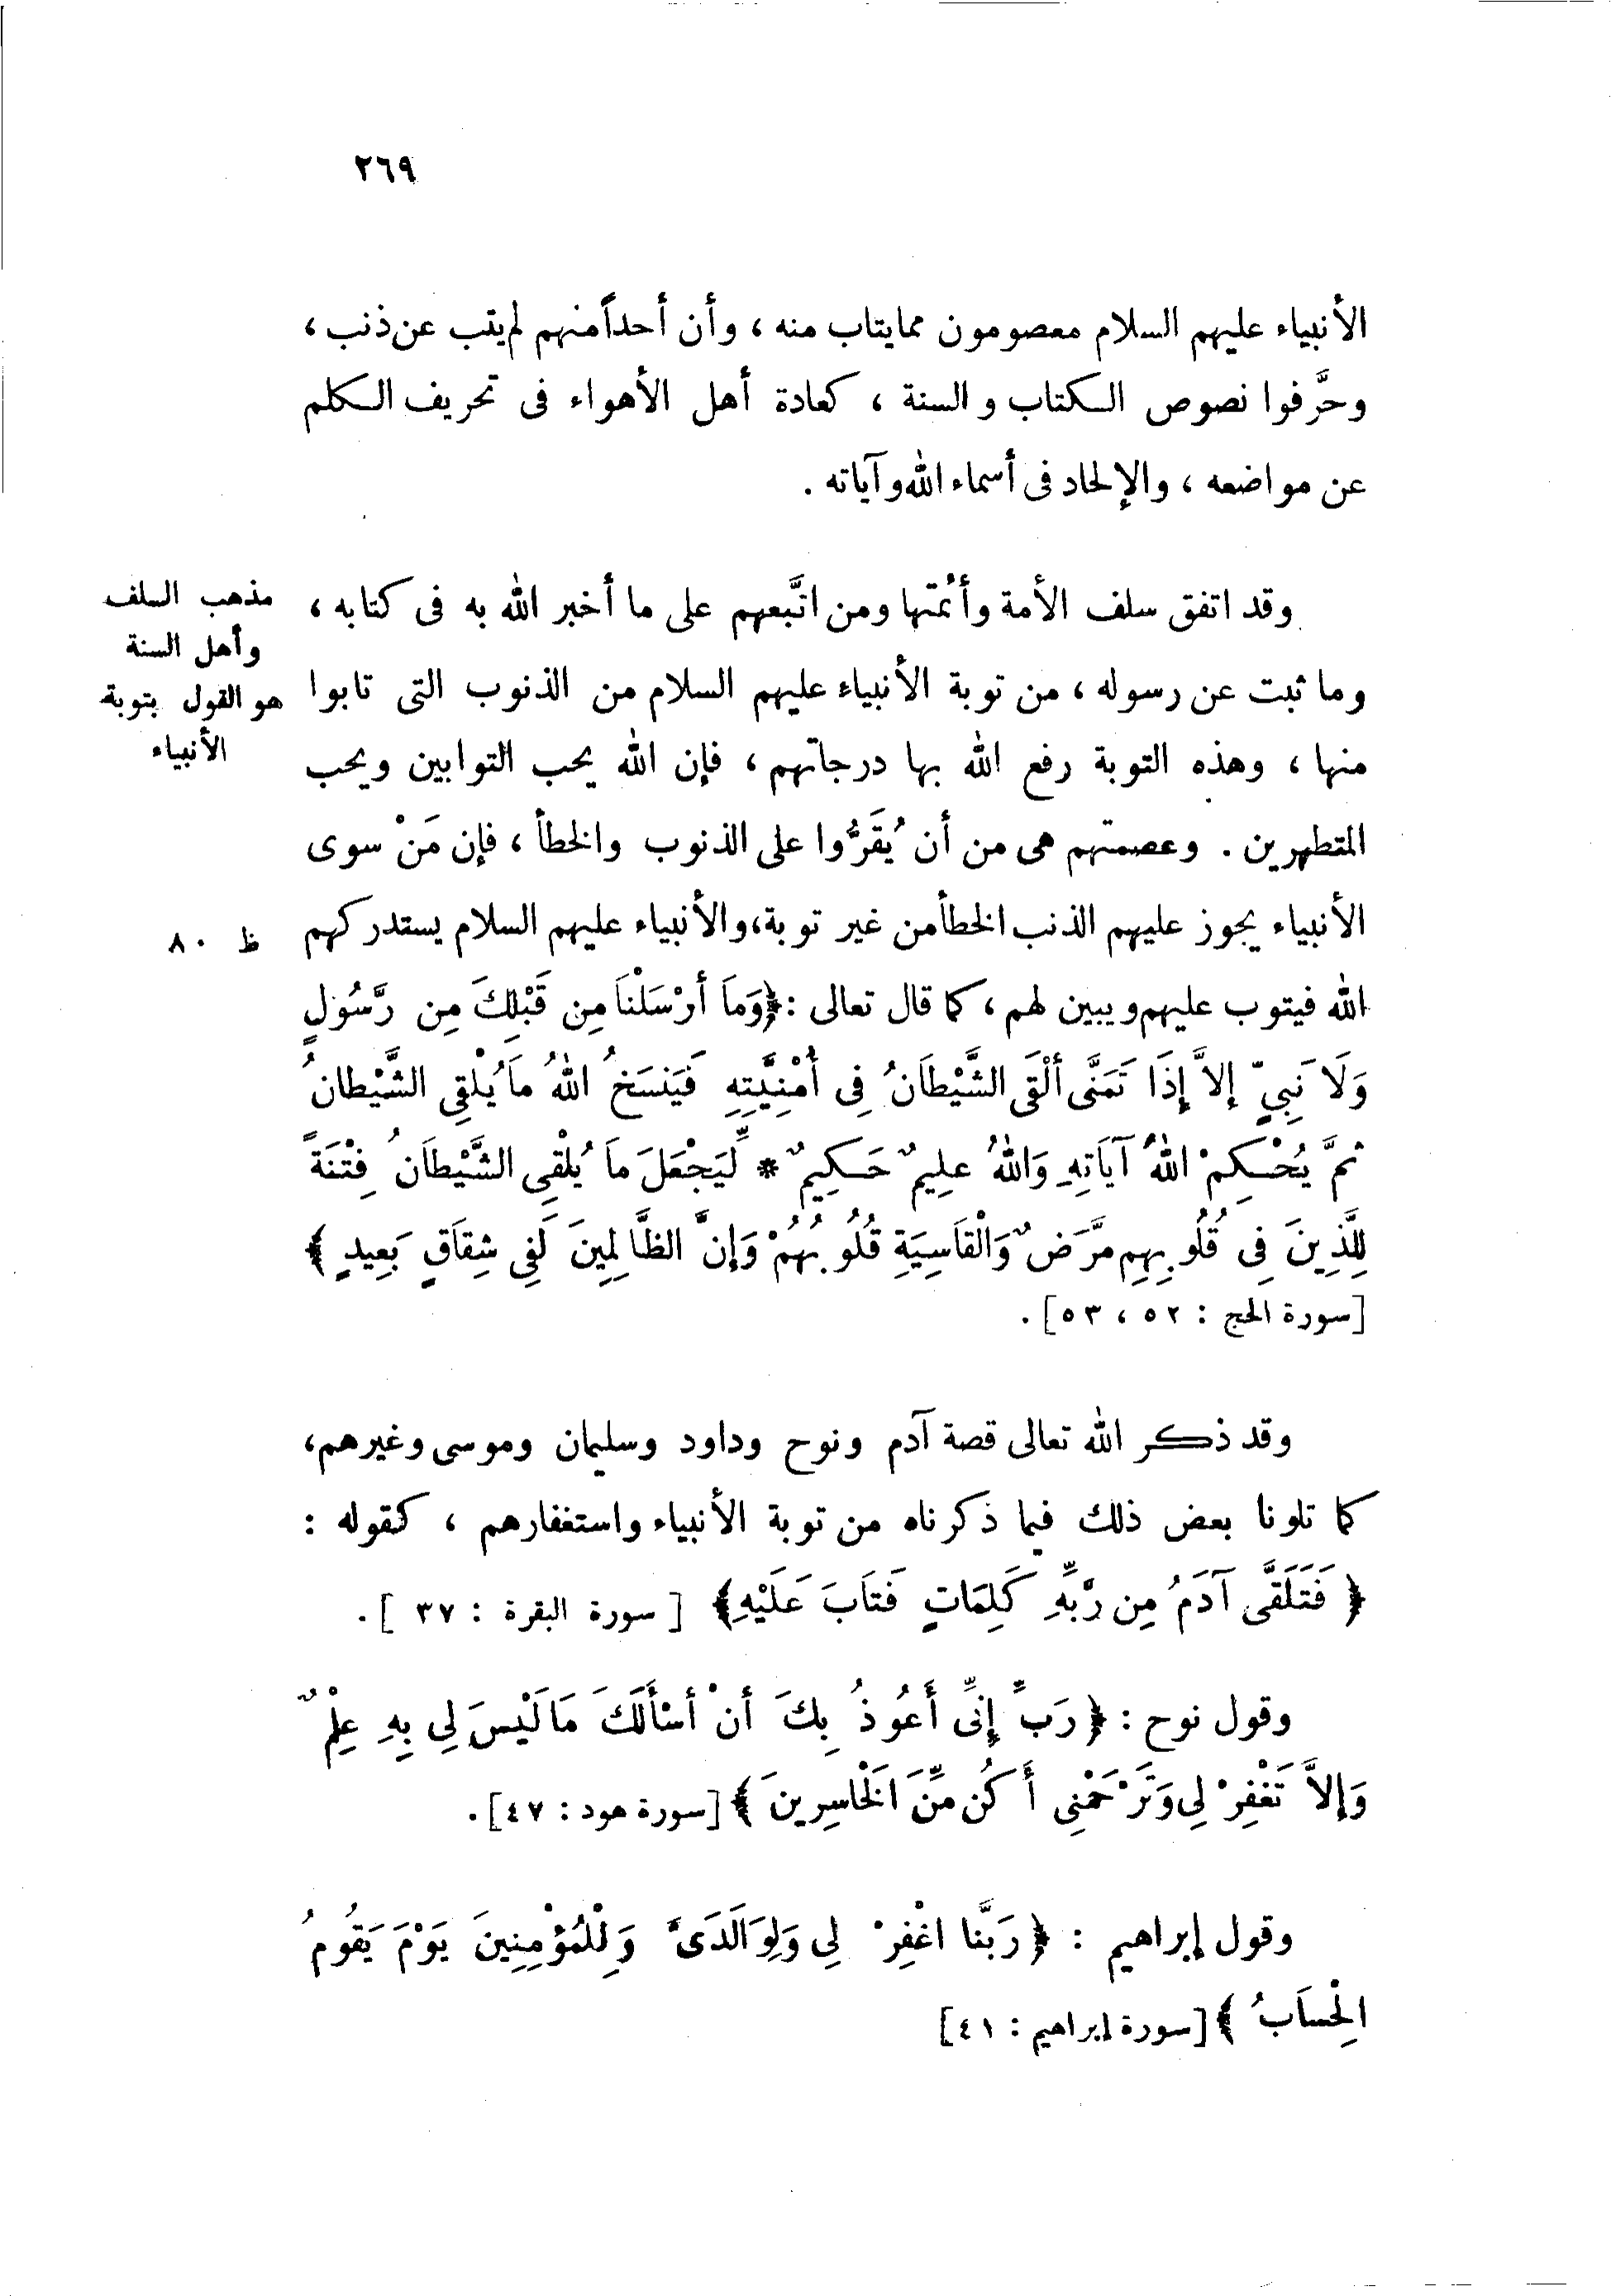 ٢٦٩
الأنبياء عليهم السلام معصومون مما يتاب منه ، وأن أحداً منهم لم يتب عن ذنب ،
وحَّرفوا نصوص الكتاب والسنة ، كعادة أهل الأهواء فى تحريف الكلم
عن مواضعه ، والإلحاد فى أسماء الله وآياته .
وقد اتفق سلف الأمة وأئمتها ومن اتَّبعهم على ما أخبر الله به فى كتابه ،
وما ثبت عن رسوله ، من توبة الأنبياء عليهم السلام من الذنوب التى تابوا
منها ، وهذه التوبة رفع الله بها درجاتهم ، فإن الله يحب التوابين ويحب
المتطهرين . وعصمتهم هى من أن يُقَرُّوا على الذنوب والخطأ ، فإن مَنْ سوى
الأنبياء يجوز عليهم الذنب الخطأ من غير توبة، والأنبياء عليهم السلام يستدركهم
الله فيتوب عليهم ويبين لهم ، كما قال تعالى : ﴿وَمَا أرْسَلْنَا مِن قَبْلِكَ مِن رَّسُولٍ
وَلَا نَبِيٍّ إلاَّ إِذَا تَمَنَّى ألْقَى الشَّيْطَانُ فِى أُمْنِيَّتِهِ فَيَنسَخُ اللهُ مَا يُلْقِى الشَّيْطانُ
ثمَّ يُحْكِمْ اللهُ آيَاتِهِ وَاللهُ علِيمٌ حَكِيمٌ * لِّيَجْعَلَ مَا يُلْقِى الشَّيْطَانُ فِتْنَةً
لِلَّذِينَ فِى قُلُوبِهِم مَّرَضٌ وَالْقَاسِيَةِ قُلُوبُهُمْ وَإنَّ الظَّالِمِينَ لَفِى شِقَاقٍ بَعِيدٍ ﴾
[سورة الحج : ٥٢ ، ٥٣] .
وقد ذكر الله تعالى قصة آدم ونوح وداود وسليمان وموسى وغيرهم،
كما تلونا بعض ذلك فيما ذكرناه من توبة الأنبياء واستغفارهم ، كقوله :
﴿ فَتَلَقَّى آدَمُ مِن رَّبِّهِ كَلِمَاتٍ فَتَابَ عَلَيْهِ﴾ [ سورة البقرة : ٣٧ ] .
وقول نوح : ﴿ رَبِّ إِنِّى أَعُوذُ بِكَ أنْ أسْأَلَكَ مَا لَيْسَ لِى بِهِ عِلْمٌ
وَإلاَّ تَغْفِرْ لِى وَتَرْحَمْنِى أَكُن مِّنَ الْخَاسِرِينَ ﴾ [سورة هود : ٤٧] .
وقول إبراهيم : ﴿ رَبَّنَا اغْفِرْ لِى وَلِوَالَدَىَّ وَلِلْمُؤْمِنِينَ يَوْمَ يَقُومُ
الْحِسَابُ ﴾ [سورة إبراهيم : ٤١]
مذهب السلف
وأهل السنة
هو القول بتوبة
الأنبياء
ظ ٨٠